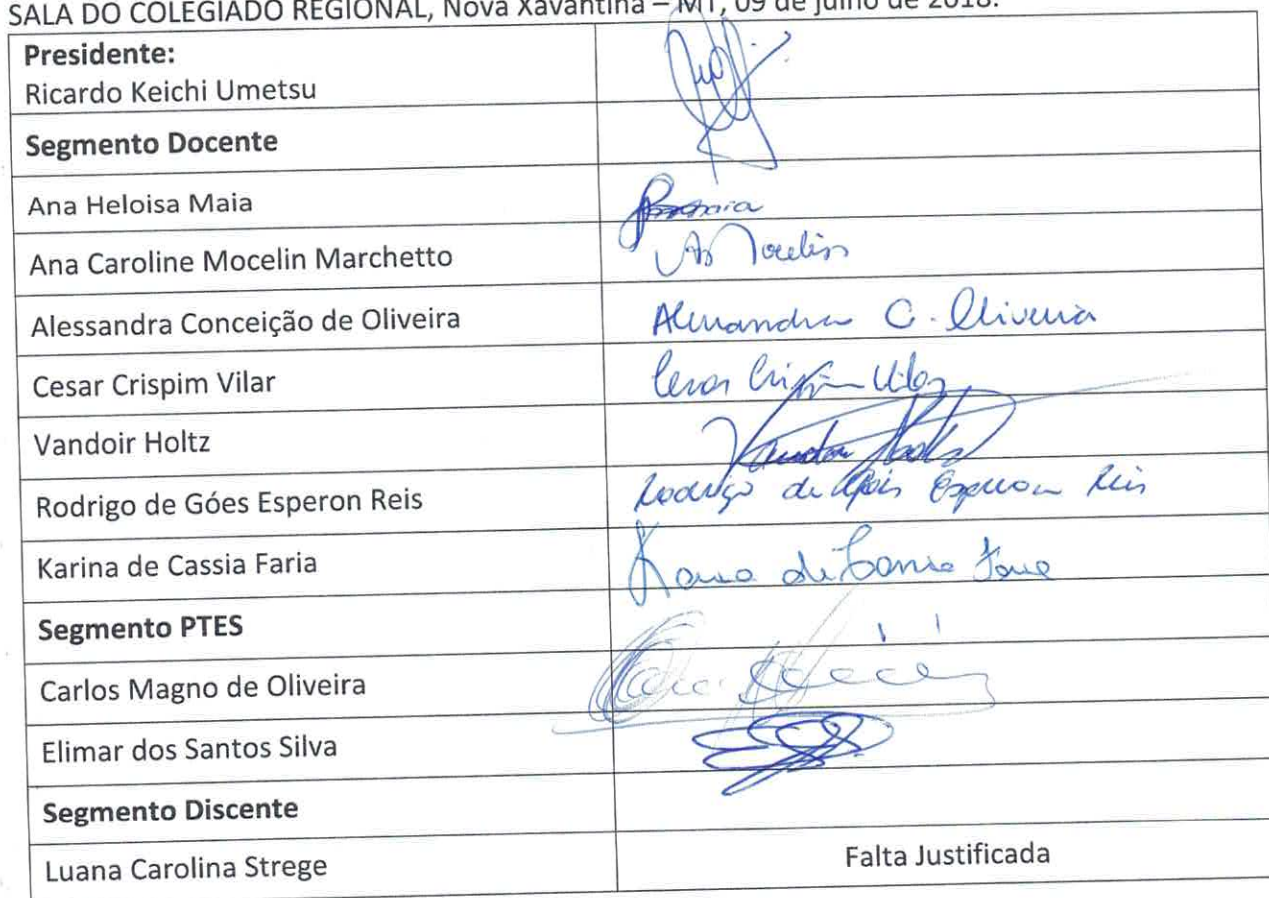 SALA DO COLEGIADO REGIONAL, Nova Xavantina – MT, 09 de julho de 2018.
Presidente:
Ricardo Keichi Umetsu
Segmento Docente
Ana Heloisa Maia
Ana Caroline Mocelin Marchetto
Alessandra Conceição de Oliveira Alessandra C. Oliveira
Cesar Crispim Vilar Cesar Crispim Vilar
Vandoir Holtz Vandoir Holtz
Rodrigo de Góes Esperon Reis Rodrigo de Góis Esperon Reis
Karina de Cassia Faria Karina de Cassia Faria
Segmento PTES
Carlos Magno de Oliveira
Elimar dos Santos Silva
Segmento Discente
Luana Carolina Strege Falta Justificada